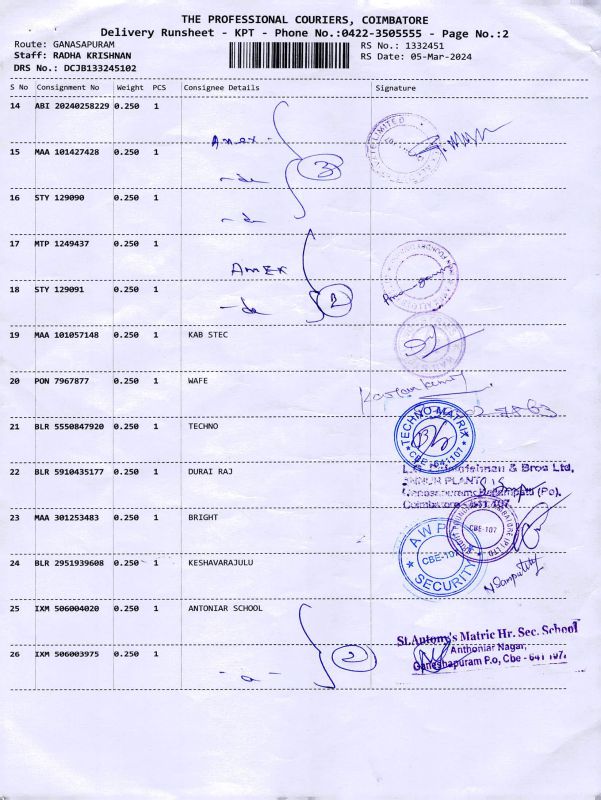 THE PROFESSIONAL COURIERS, COIMBATORE
Delivery Runsheet - KPT - Phone No.:0422-3505555 - Page No.:2
Route: GANASAPURAM RS No.: 1332451
Staff: RADHA KRISHNAN RS Date: 05-Mar-2024
DRS No.: DCJB133245102
S No Consignment No Weight PCS Consignee Details Signature
14 ABI 20240258229 0.250 1
Amex -
15 MAA 101427428 0.250 1
3
- do
16 STY 129090 0.250 1
- do
17 MTP 1249437 0.250 1
AmEx
18 STY 129091 0.250 1
- do 2
19 MAA 101057148 0.250 1 KAB STEC
20 PON 7967877 0.250 1 WAFE
21 BLR 5550847920 0.250 1 TECHNO
TECHNO-MATRIX
CBE-641107
22 BLR 5910435177 0.250 1 DURAI RAJ
& Bros Ltd,
Coimbatore - 641 107.
23 MAA 301253483 0.250 1 BRIGHT
CBE-107
24 BLR 2951939608 0.250 1 KESHAVARAJULU
SECURITY
25 IXM 506004020 0.250 1 ANTONIAR SCHOOL
St.Antony's Matric Hr. Sec. School
Anthoniar Nagar,
Ganeshapuram P.o, Cbe - 641 107.
26 IXM 506003975 0.250 1
2